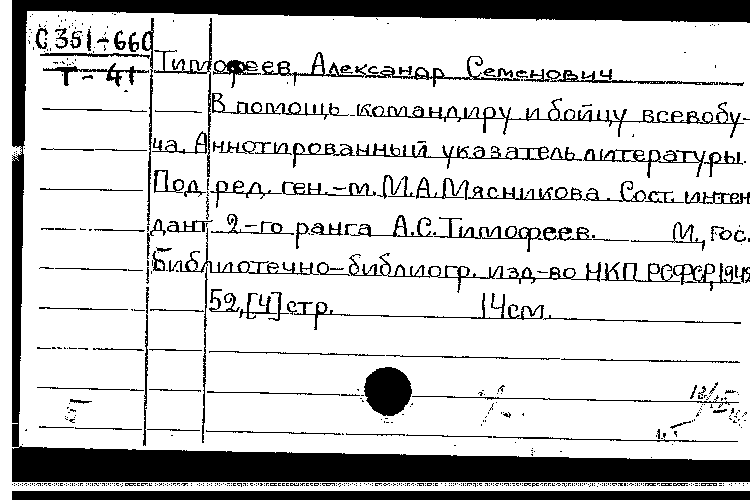 С 351-660
Т-41
Тимофеев, Александр Семенович
В помощь командиру и бойцу всевобу-
ча. Аннотированный указатель литературы.
Под ред. ген.-м. М.А.Мясникова. Сост. интен
дант 2-го ранга А.С.Тимофеев. М., гос.
Библиотечно-библиогр. изд-во НКП РСФСР, 1942
52,[4] стр. 14см.
Б